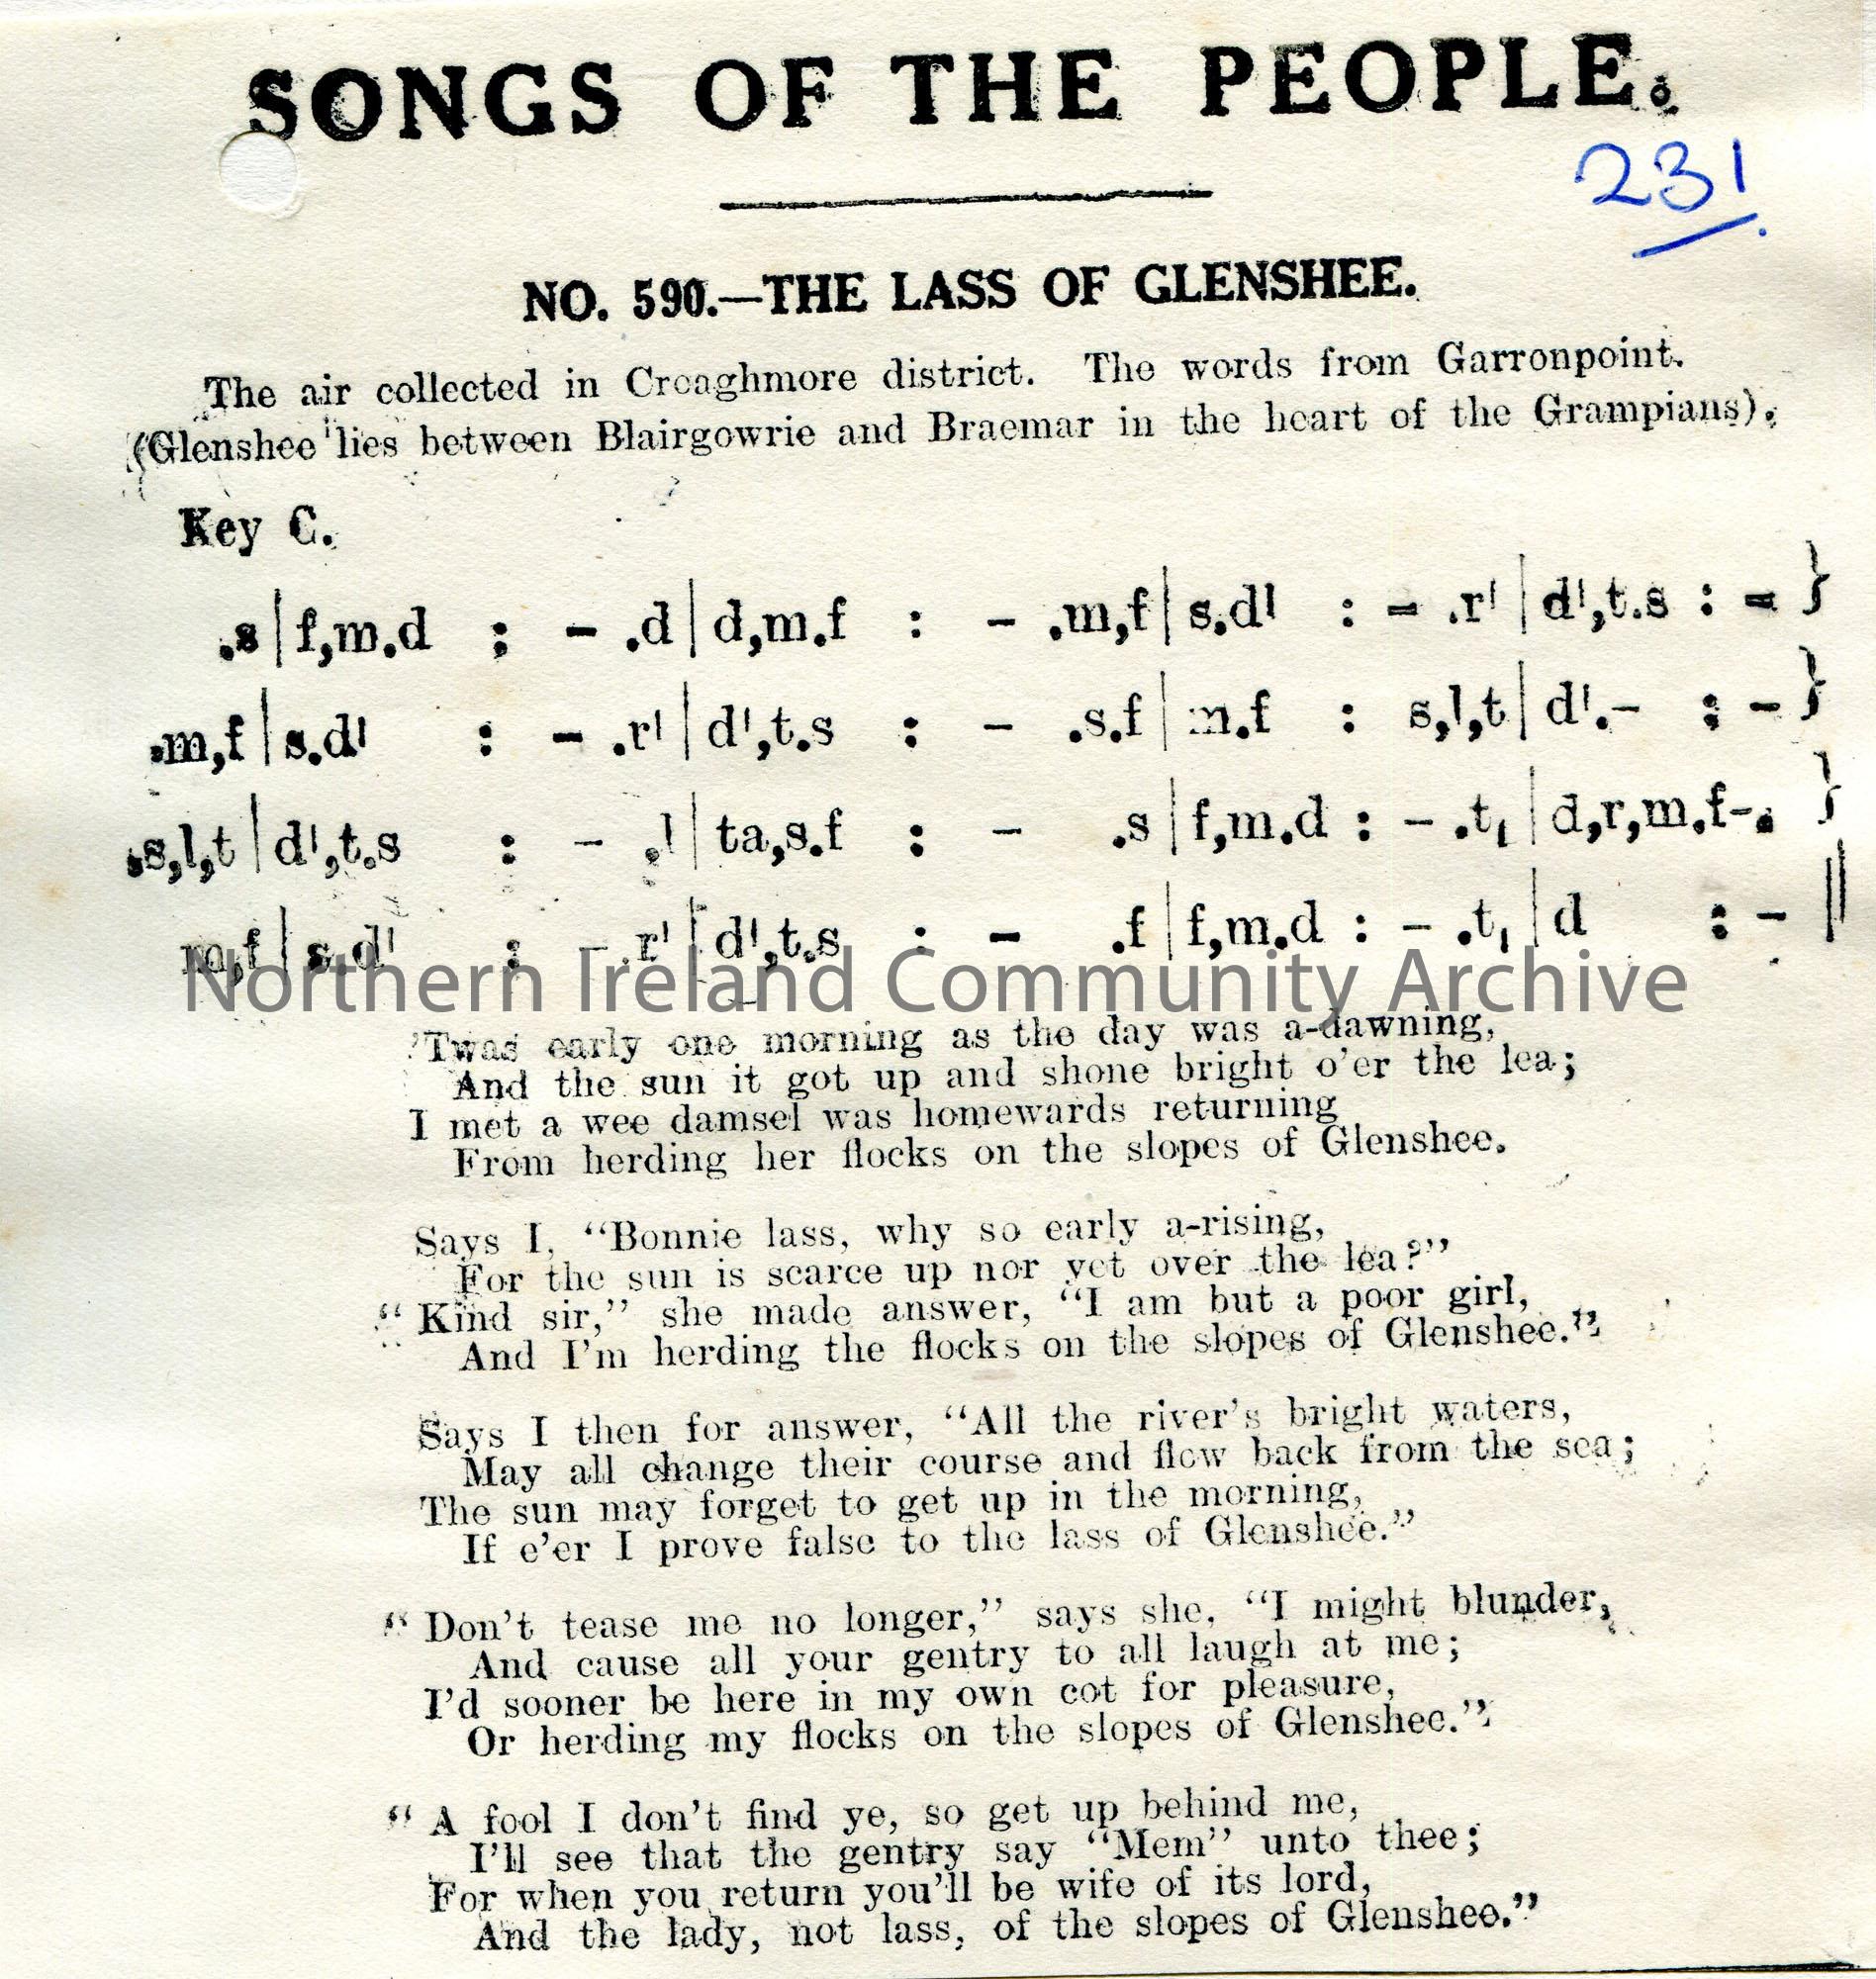 SONGS OF THE PEOPLE.
231
NO. 590.—THE LASS OF GLENSHEE.
The air collected in Croaghmore district. The words from Garronpoint.
(Glenshee lies between Blairgowrie and Braemar in the heart of the Grampians).
Key C.
.s | f,m.d : – .d | d,m.f : – .m,f | s.d' : – .r' | d',t.s : – }
.m,f | s.d' : – .r' | d',t.s : – .s.f | m.f : s,l,t | d'.– : – }
.s,l,t | d',t.s : – .l | ta,s.f : – .s | f,m.d : – .t, | d,r,m.f–. }
m,f | s.d' : – .r' | d',t.s : – .f | f,m.d : – .t, | d : – ||
Northern Ireland Community Archive
'Twas early one morning as the day was a-dawning,
And the sun it got up and shone bright o'er the lea;
I met a wee damsel was homewards returning
From herding her flocks on the slopes of Glenshee.
Says I, "Bonnie lass, why so early a-rising,
For the sun is scarce up nor yet over the lea?"
"Kind sir," she made answer, "I am but a poor girl,
And I'm herding the flocks on the slopes of Glenshee."
Says I then for answer, "All the river's bright waters,
May all change their course and flow back from the sea;
The sun may forget to get up in the morning,
If e'er I prove false to the lass of Glenshee."
"Don't tease me no longer," says she, "I might blunder,
And cause all your gentry to all laugh at me;
I'd sooner be here in my own cot for pleasure,
Or herding my flocks on the slopes of Glenshee."
"A fool I don't find ye, so get up behind me,
I'll see that the gentry say "Mem" unto thee;
For when you return you'll be wife of its lord,
And the lady, not lass, of the slopes of Glenshee."